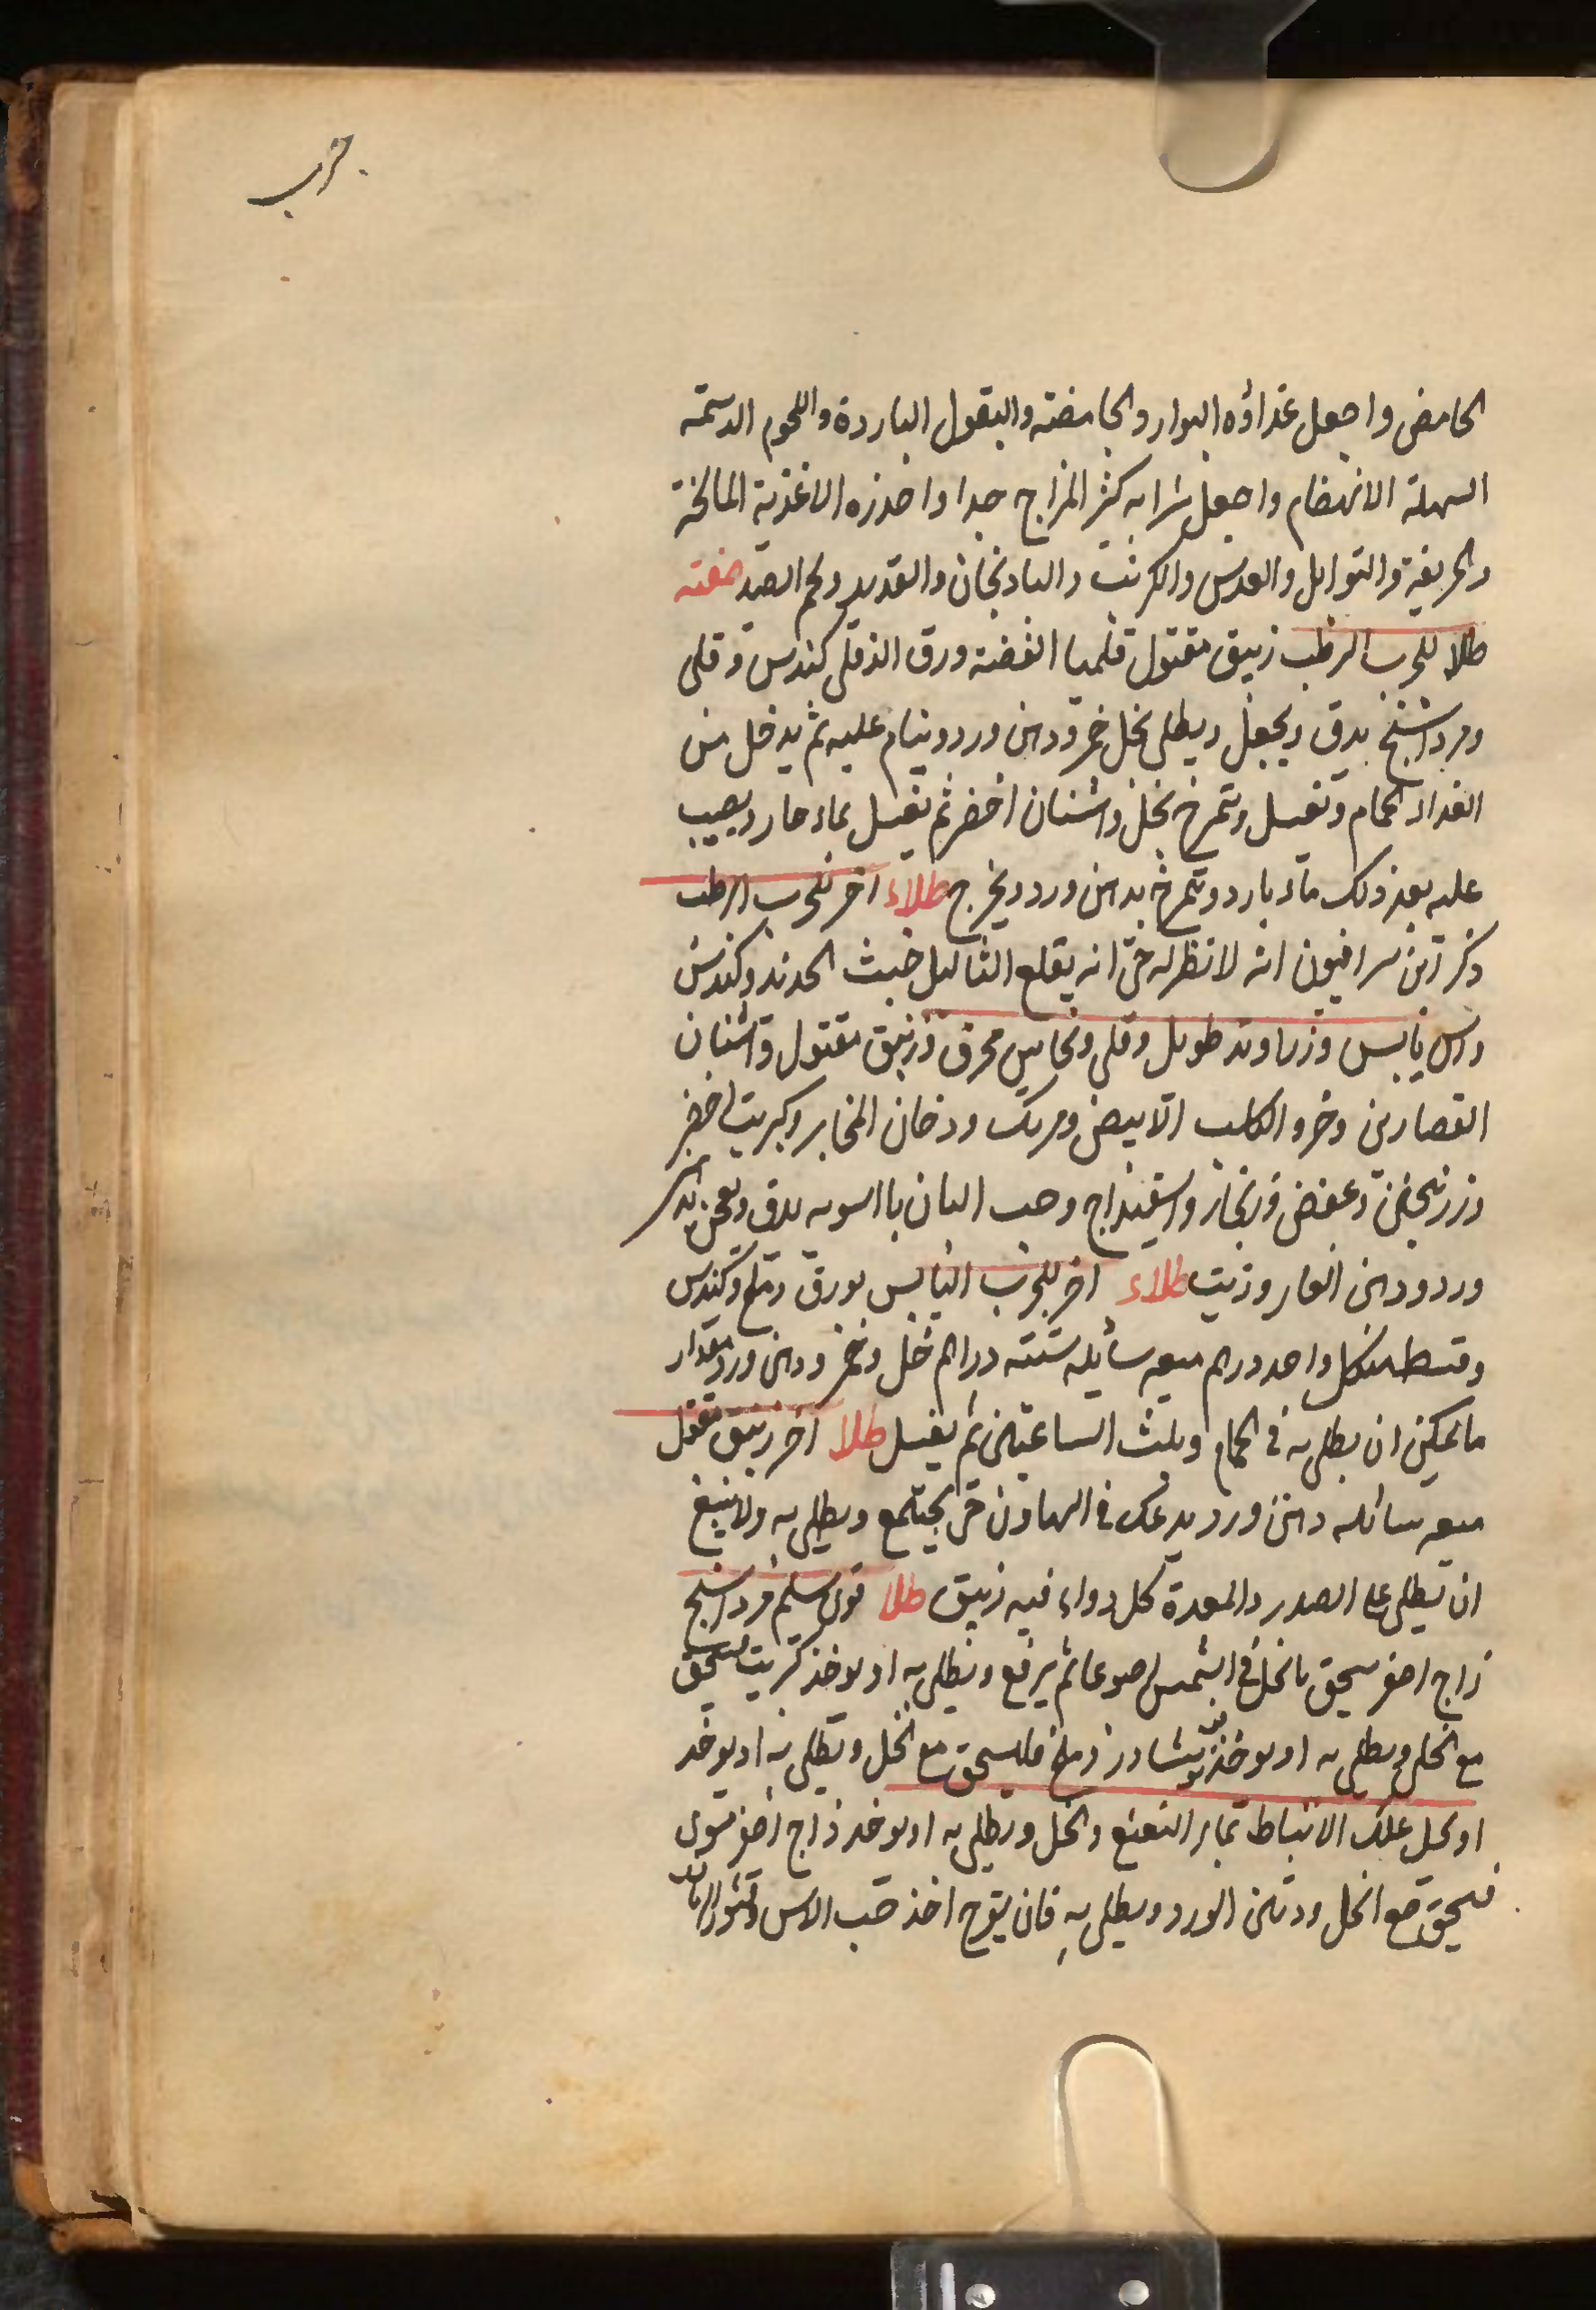 جرب
الحامض واجعل غذاؤه البوارد الحامضة والبقول الباردة واللحوم الدسمة
السهلة الانهضام واجعل شرابه كثير المزاج جدا واحذره الاغذية المالحة
والحريفة والتوابل والعدس والكرنب والبادنجان والقديد ولحم الصيد صفة
طلا للجرب الرطب زيبق مقتول قلميا الفضة ورق الدفلى كندس وقلى
ومرداسنج يدق ويجعل ويطلى بخل خمر ودهن ورد وينام عليه ثم يدخل من
الغداد الحمام وتغسل وتمرخ بخل واشنان اخضر ثم تغسل بماء حار ويصب
عليه بعد ذلك ماء بارد وتمرخ بدهن ورد ويخرج طلاء اخر للجرب الرطب
ذكر ابن سرافيون انه لا نظر له حتى انه يقلع الثاليل خبث الحديد وكندس
واس يابس وزراوند طويل وقلى ونحاس محرق وزيبق مقتول واشنان
القصارين وخرو الكلب الابيض ومرتك ودخان المخابز وكبريت اخضر
وزرنيخين وعفص وزنجار واسفيداج وحب البان بالسويه يدق ويعجن بدهن
ورد ودهن الغار وزيت طلاء اخر للجرب اليابس بورق وملح وكندس
وقسط من كل واحد درهم ميعه سايله ستة دراهم خل وخمر ودهن ورد مقدار
ما يمكن ان يطلى به في الحمام ويلبث الساعتين ثم يغسل طلا اخر زيبق مقتول
ميعه سائله دهن ورد يدعك في الهاون حتى يجتمع ويطلى به ولا ينبغي
ان تطلى على الصدر والمعدة كل دواء فيه زيبق طلا قوى سليم مرداسنج
زاج اصفر يسحق بالخل في الشمس اسبوعا ثم يرفع ويطلى به او يوخذ كبريت فيسحق
مع الخل ويطلى به او يوخذ نوشادر وملح فليسحق مع الخل ويطلى به او يوخذ
او يحل علك الانباط بماء النعنع والخل ويطلى به او يوخذ زاج اصفر مشوى
فيسحق مع الخل ودهن الورد ويطلى به فان تقرح اخذ حب الاس وقشور الرمان